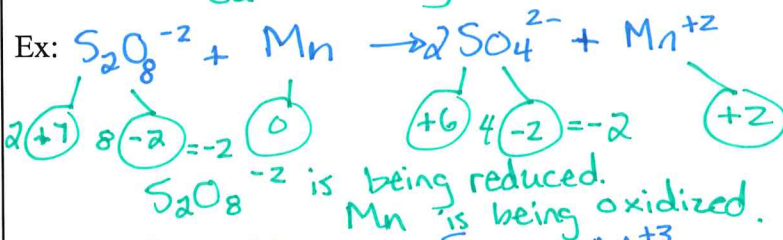 Ex: S₂O₈⁻² + Mn → 2SO₄²⁻ + Mn⁺²
2(+7) 8(-2)=-2 0 +6 4(-2)=-2 +2
S₂O₈⁻² is being reduced.
Mn is being oxidized.
+3